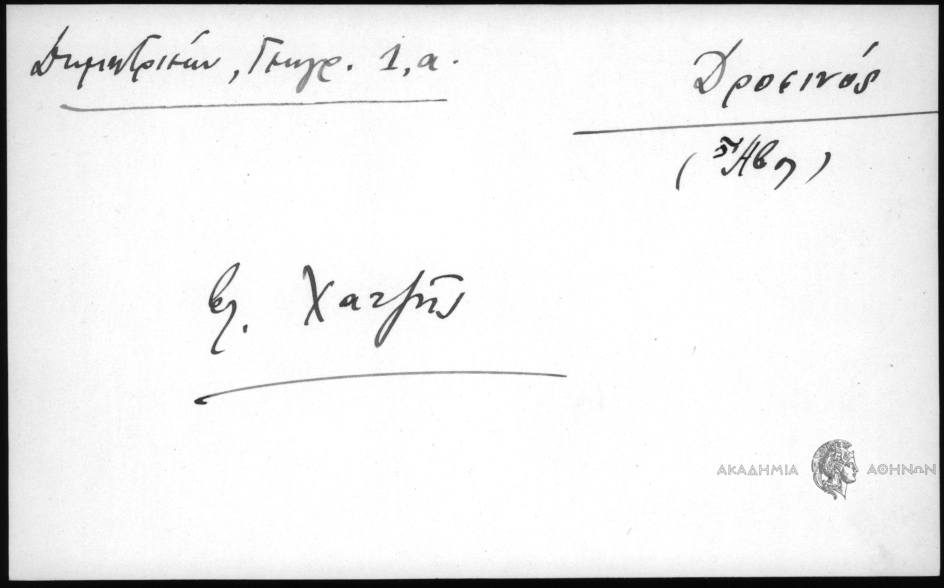 Δημητρίου, Γεωγρ. 1, α.
Δροσινός
(Ἄβη)
βλ. Χατζῆς
ΑΚΑΔΗΜΙΑ ΑΘΗΝΩΝ